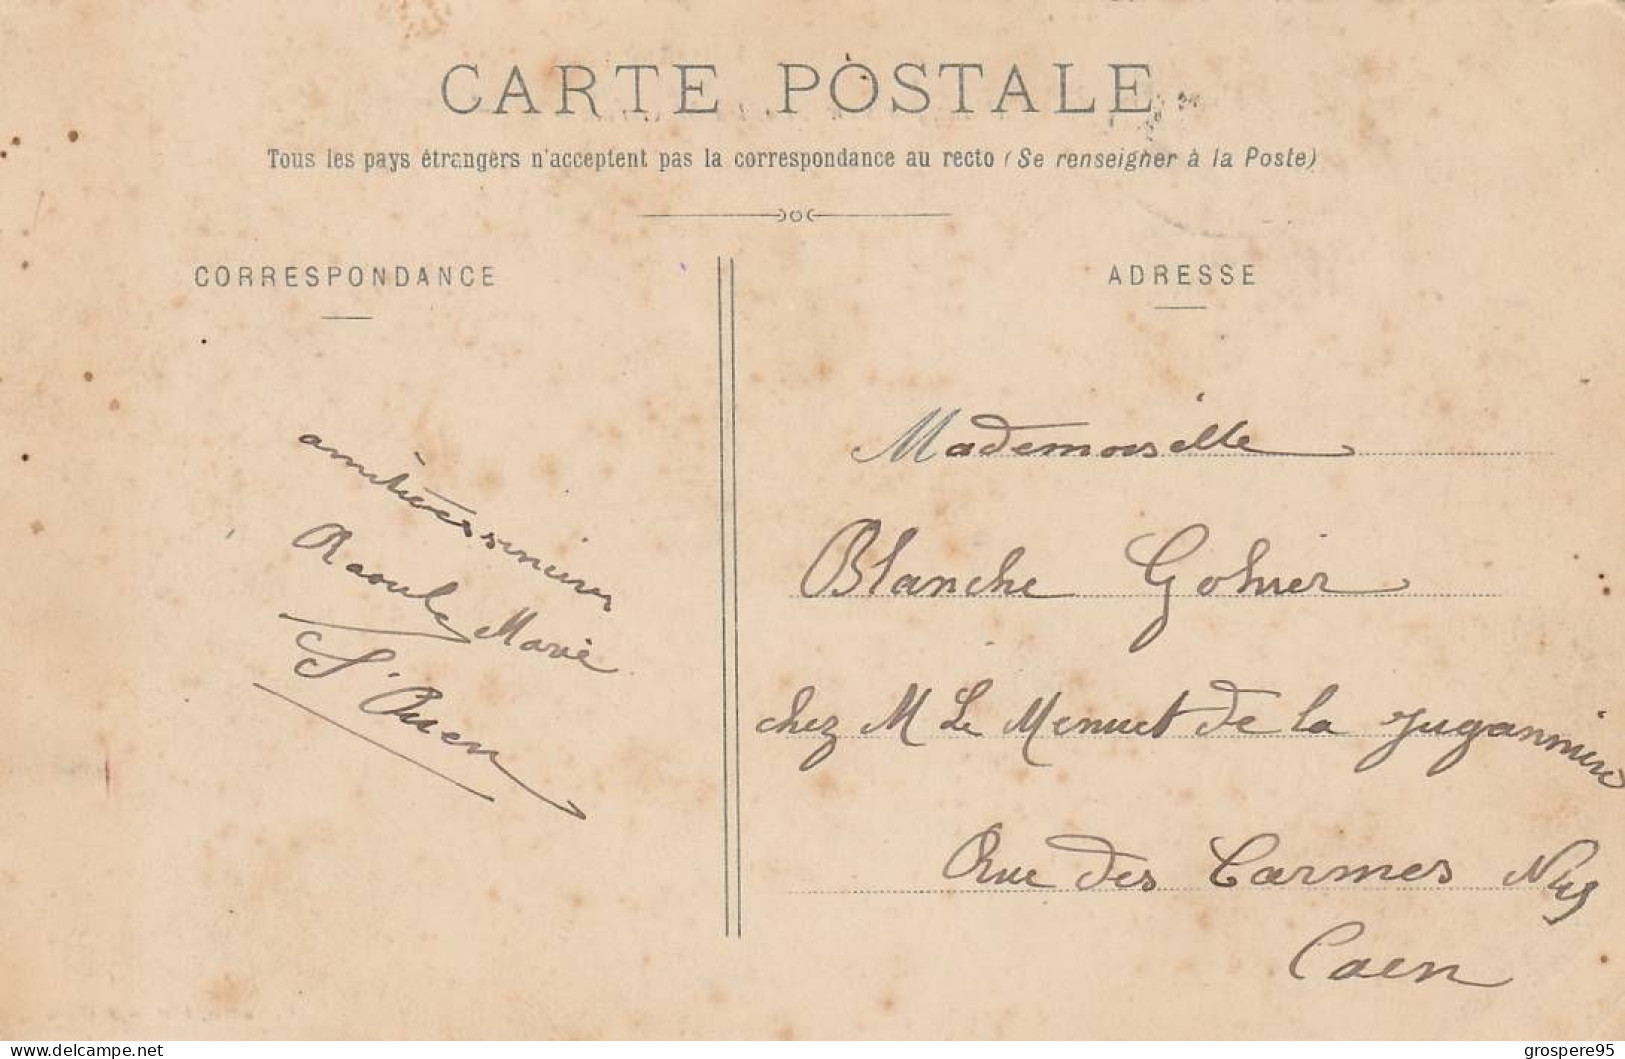 CARTE POSTALE
Tous les pays étrangers n'acceptent pas la correspondance au recto (Se renseigner à la Poste)
CORRESPONDANCE
ADRESSE
Raoule Marie
St Ouen
Mademoiselle
Blanche Gohier
chez M Le Menuet de la Jugannière
Rue des Carmes
Caen
www.delcampe.net
grospere95